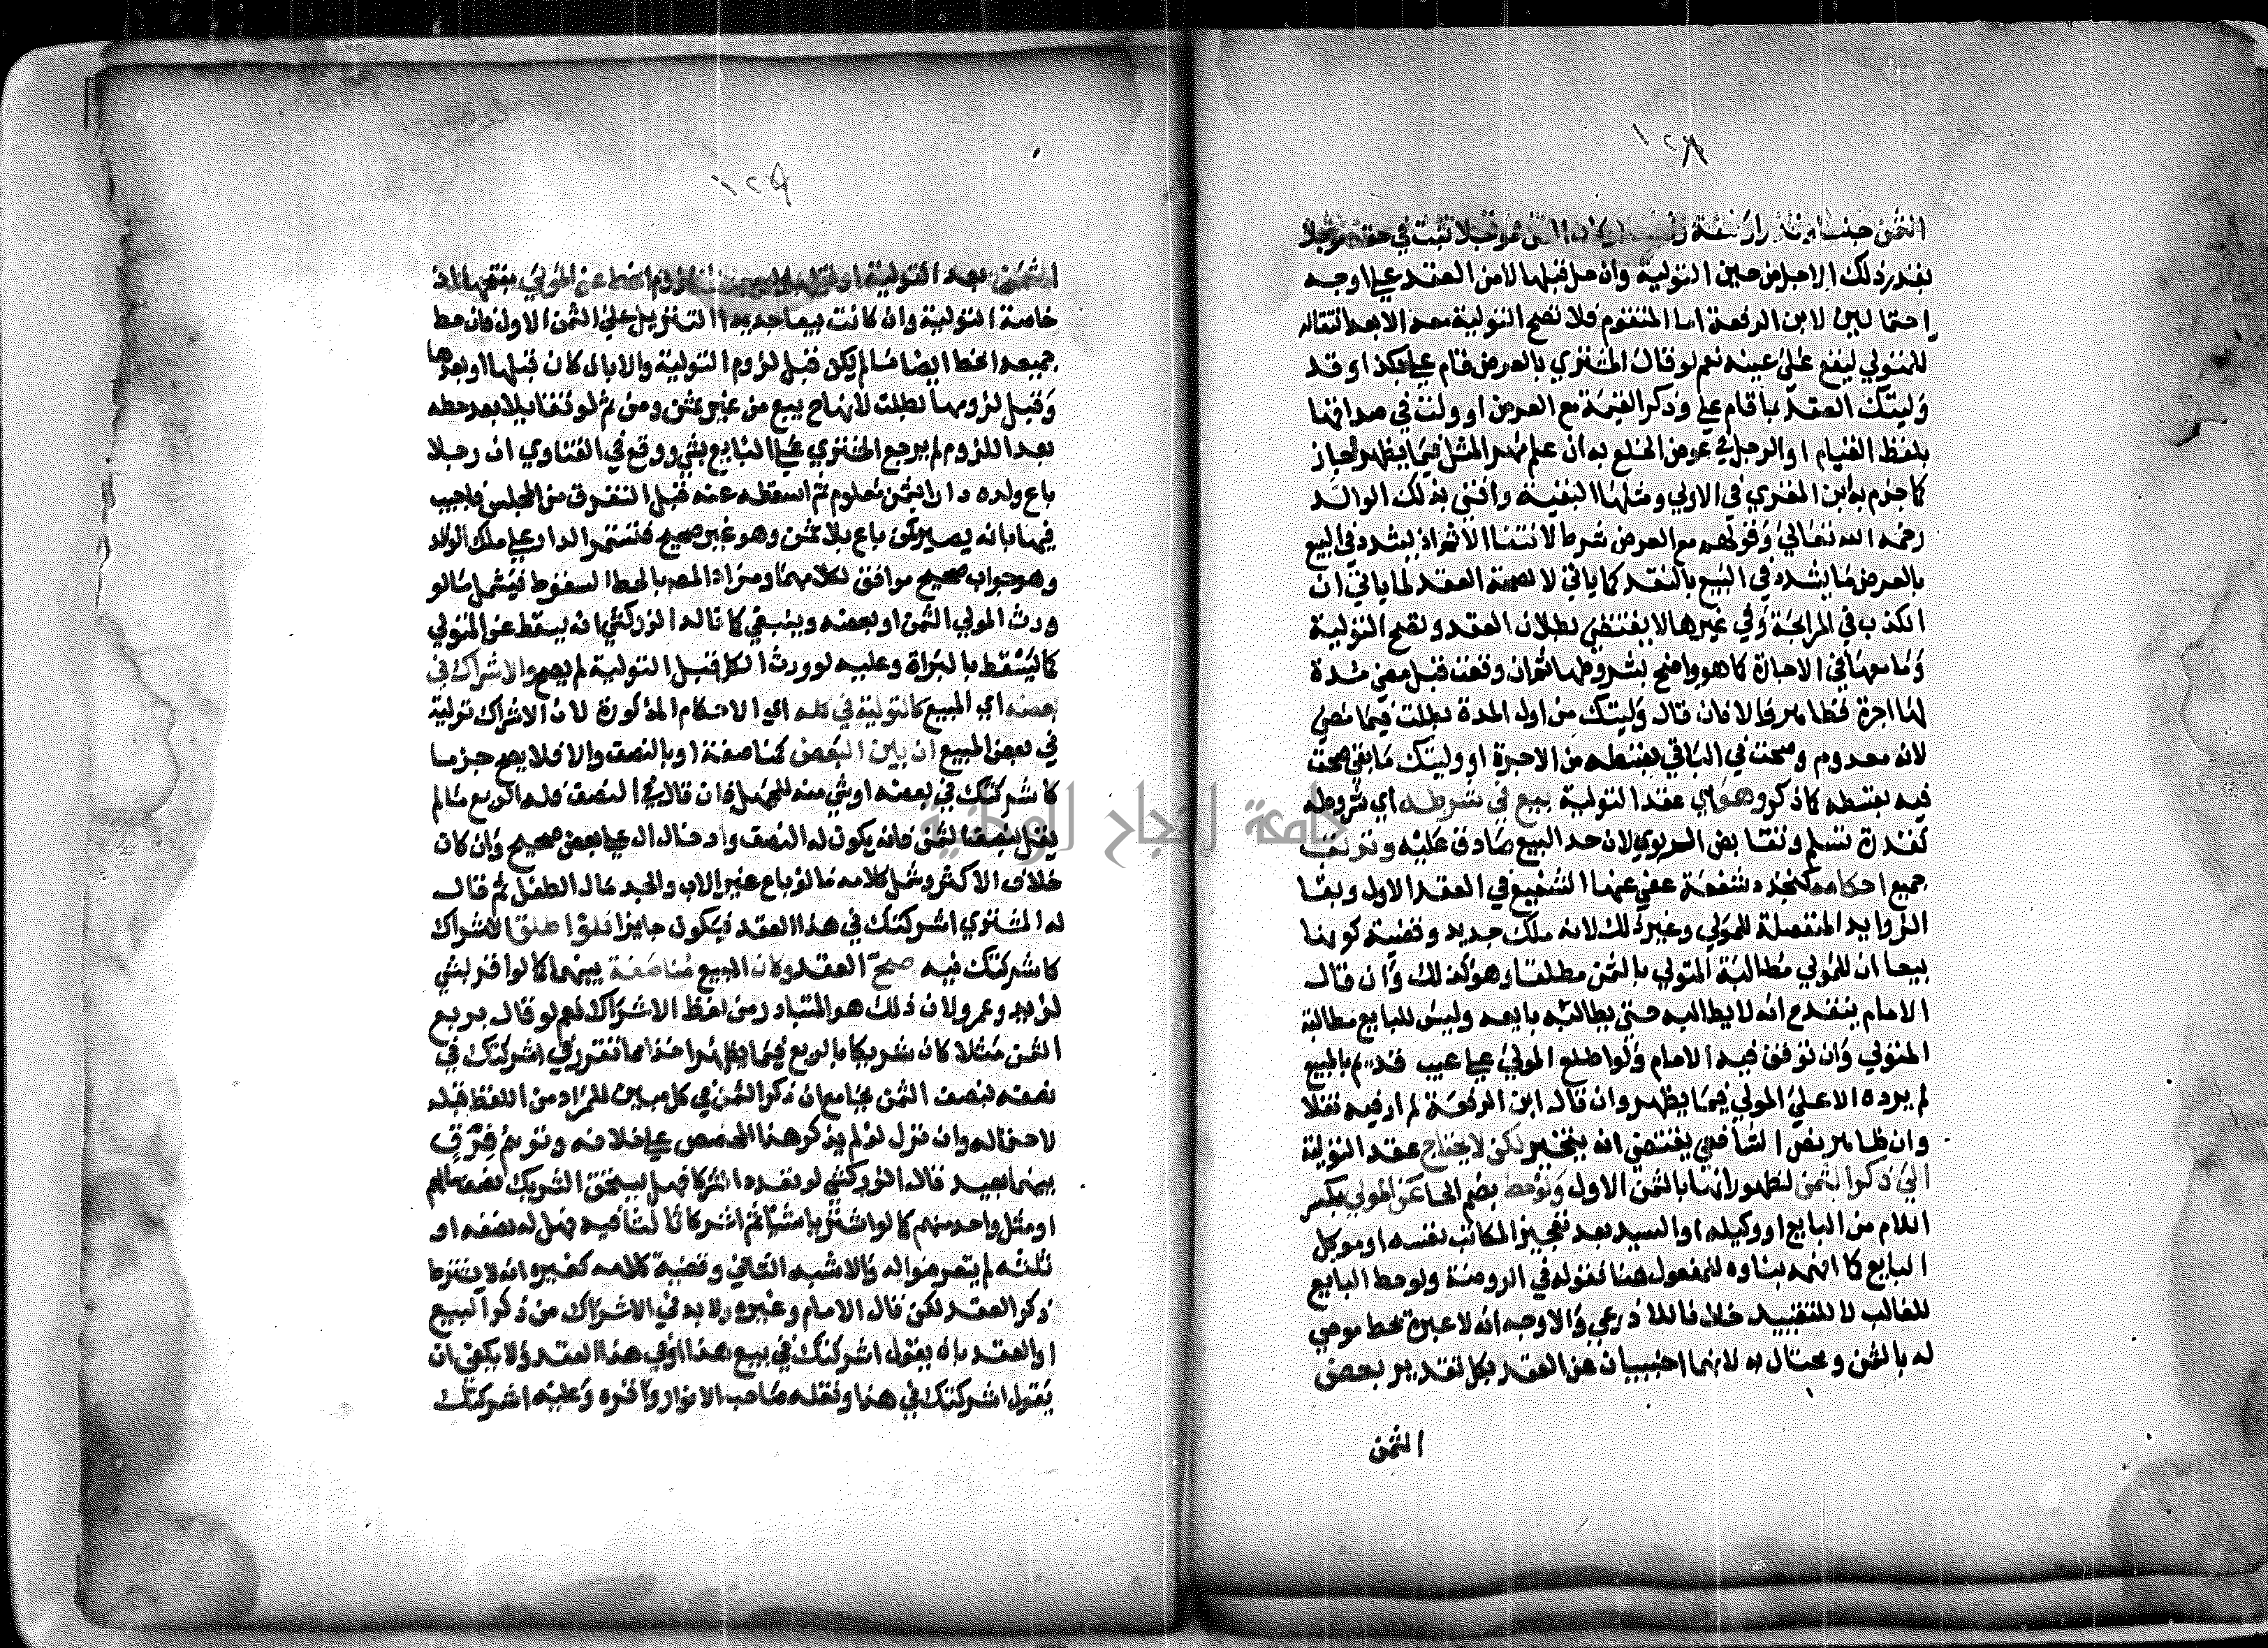 ١٢٨
الثمن جنسا وقدرا وصفة ولو كان الثمن مؤجلا ثبت في حقه مؤجلا
بقدر ذلك الاجل من حين التولية وان حل قبلها لا من العقد علي اوجه
احتمالين لابن الرفعة اما المتقوم فلا تصح التولية معه الا بعد انتقاله
للمتولي ليقع علي عينه نعم لو قال المشتري بالعرض قام علي بكذا وقد
وليتك العقد بما قام علي وذكر القيمة مع العرض او ولت في صداقها
بلفظ القيام او الرجل في عوض الخلع به ان علم مهر المثل فيما يظهر جاز
كما جزم به ابن المقري في الاولي ومثلها البقية وافتي بذلك الوالد
رحمه الله تعالي وقولهم مع العرض شرط لانتفا الاثم اذ يشدد في البيع
بالعرض ما يشدد في البيع بالنقد كما ياتي لا لصحة العقد لما ياتي ان
الكذب في المرابحة وفي غيرها لا يقتضي بطلان العقد وتصح التولية
وما معها في الاجارة كما هو واضح بشروطها ثم ان وقعت قبل مضي مدة
لها اجرة فظاهر والا فان قال وليتك من اول المدة بطلت فيما مضي
لانه معدوم وصحت في الباقي بقسطه من الاجرة او وليتك ما بقي صحت
فيه بقسطه كما ذكر وهو اي عقد التولية بيع في شرطه اي شروطه
كقدرة تسلم وتقابض الربوي لان حد البيع صادق عليه وترتب
جميع احكامه كتجدد شفعة عفي عنها الشفيع في العقد الاول وبقا
الزوايد المنفصلة للمولي وغير ذلك لانه ملك جديد وقضية كونها
بيعا ان للمولي مطالبة المتولي بالثمن مطلقا وهو كذلك وان قال
الامام ينقدح انه لا يطالبه حتي يطالبه بايعه وليس للبايع مطالبة
المتولي وان توقف فيه الامام ولو اطلع المولي علي عيب قديم بالمبيع
لم يرده الا علي المولي فيما يظهر وان قال ابن الرفعة لم ار فيه نقلا
وان ظاهر نص الشافعي يقتضي انه يتخير لكن لا يحتاج عقد التولية
الي ذكر الثمن لظهور انها بالثمن الاول ولو حط بضم الحا عن المولي بكسر
اللام من البايع او وكيله او السيد بعد تعجيز المكاتب نفسه او موكل
البايع كما افهمه بناوه للمفعول هنا فقوله في الروضة ولو حط البايع
للغالب لا للتقييد خلافا للاذرعي والاوجه انه لا عبرة بحط موصي
له بالثمن ومحتال به لانهما اجنبيان عن العقد بكل تقدير بعض
الثمن
١٢٩
الثمن بعد التولية او قبلها ولو بعد اللزوم انحط عن المولي بفتحها اذ
خاصة التولية وان كانت بيعا جديدا التنزيل علي الثمن الاول فان حط
جميعه انحط ايضا ما لم يكن قبل لزوم التولية والا بان كان قبلها او بعدها
وقبل لزومها بطلت لانها ح بيع من غير ثمن ومن ثم لو تقايلا بعد حطه
بعد اللزوم لم يرجع المشتري علي البايع بشي ووقع في الفتاوي ان رجلا
باع ولده دارا بثمن معلوم ثم اسقطه عنه قبل التفرق من المجلس فاجيب
فيها بانه يصير كمن باع بلا ثمن وهو غير صحيح فتستمر الدار علي ملك الوالد
وهو جواب صحيح موافق لكلامهما ومراد المص بالحط السقوط فيشمل ما لو
ورث المولي الثمن او بعضه وينبغي كما قاله الزركشي انه يسقط عن المتولي
كما يسقط بالبراة وعليه لو ورث الكل قبل التولية لم يصح والاشراك في
بعضه اي المبيع كالتولية في كله اي الاحكام المذكورة لان الاشراك تولية
في بعض المبيع ان بين البعض كمناصفة او بالنصف والا فلا يصح جزما
كاشركتك في بعضه او شي منه للجهل فان قال في النصف فله الربع ما لم
يقل بنصف الثمن فانه يكون له النصف وادخال ال علي بعض صحيح وان كان
خلاف الاكثر وشمل كلامه ما لو باع غير الاب والجد مال الطفل ثم قال
له المشتري اشركتك في هذا العقد فيكون جايزا فلو اطلق الاشراك
كاشركتك فيه صح العقد وكان المبيع مناصفة بينهما كما لو اقر بشي
لزيد وعمرو لان ذلك هو المتبادر من لفظ الاشراك نعم لو قال بربع
الثمن مثلا كان شريكا بالربع فيما يظهر اخذا مما تقرر في اشركتك في
نصفه بنصف الثمن بجامع ان ذكر الثمن في كل مبين للمراد من اللفظ قبله
لاحتماله وان نزل لو لم يذكر هذا المخصص علي خلافه وتوهم فرق
بينهما بعيد قال الزركشي لو تعدد الشركا فهل يستحق الشريك نصف مالهم
او مثل واحد منهم كما لو اشتريا شيا ثم اشركا ثالثا فيه فهل له نصفه او
ثلثه لم يتعرضوا له والاشبه الثاني وقضية كلامه كغيره انه لا يشترط
ذكر العقد لكن قال الامام وغيره ولا بد في الاشراك من ذكر البيع
او العقد بان يقول اشركتك في بيع هذا او في هذا العقد ولا يكفي ان
يقول اشركتك في هذا ونقله صاحب الانوار واقره وعليه اشركتك
جامعة النجاح الوطنية